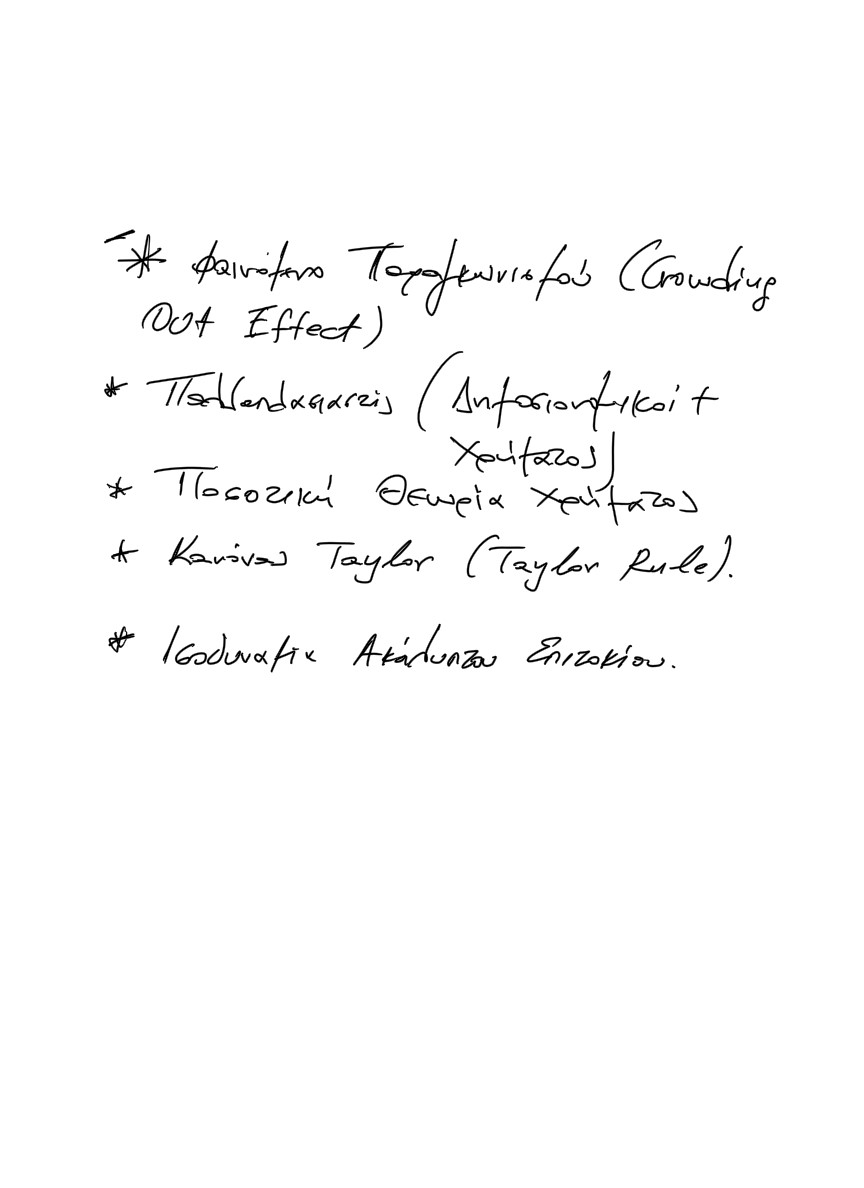 * Φαινόμενο Παραγκωνισμού (Crowding
Out Effect)
* Πολλαπλασιαστές (Δημοσιονομικοί +
Χρήματος)
* Ποσοτική Θεωρία Χρήματος
* Κανόνας Taylor (Taylor Rule).
* Ισοδυναμία Ακάλυπτου Επιτοκίου.